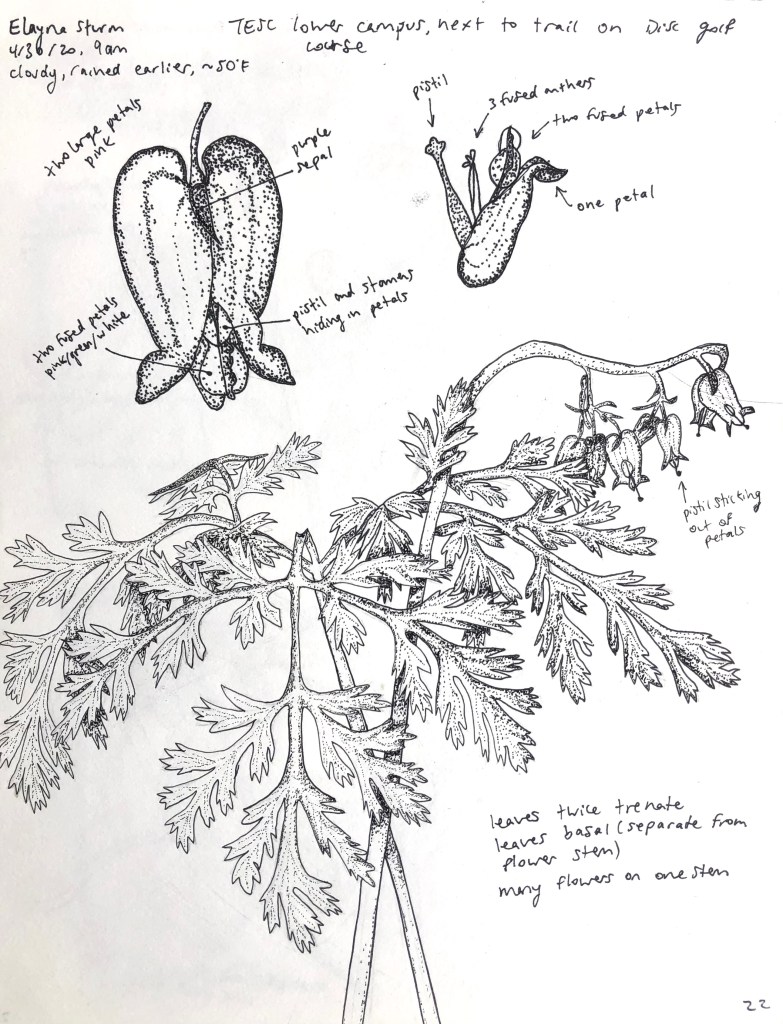 Elayna Sturm
4/30/20, 9am
cloudy, rained earlier, ~50°F
TESC lower campus, next to trail on Disc golf
course
two large petals
pink
purple
sepal
pistil
3 fused anthers
two fused petals
one petal
two fused petals
pink/green/white
pistil and stamens
hiding in petals
pistil sticking
out of
petals
leaves twice trenate
leaves basal (separate from
flower stem)
many flowers on one stem
22